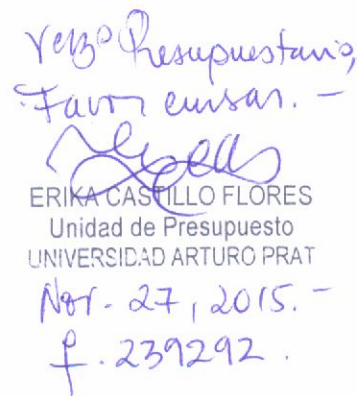 VºBº Presupuestario,
Favor cursar. -
ERIKA CASTILLO FLORES
Unidad de Presupuesto
UNIVERSIDAD ARTURO PRAT
Nov. - 27, 2015. -
f. 239292.